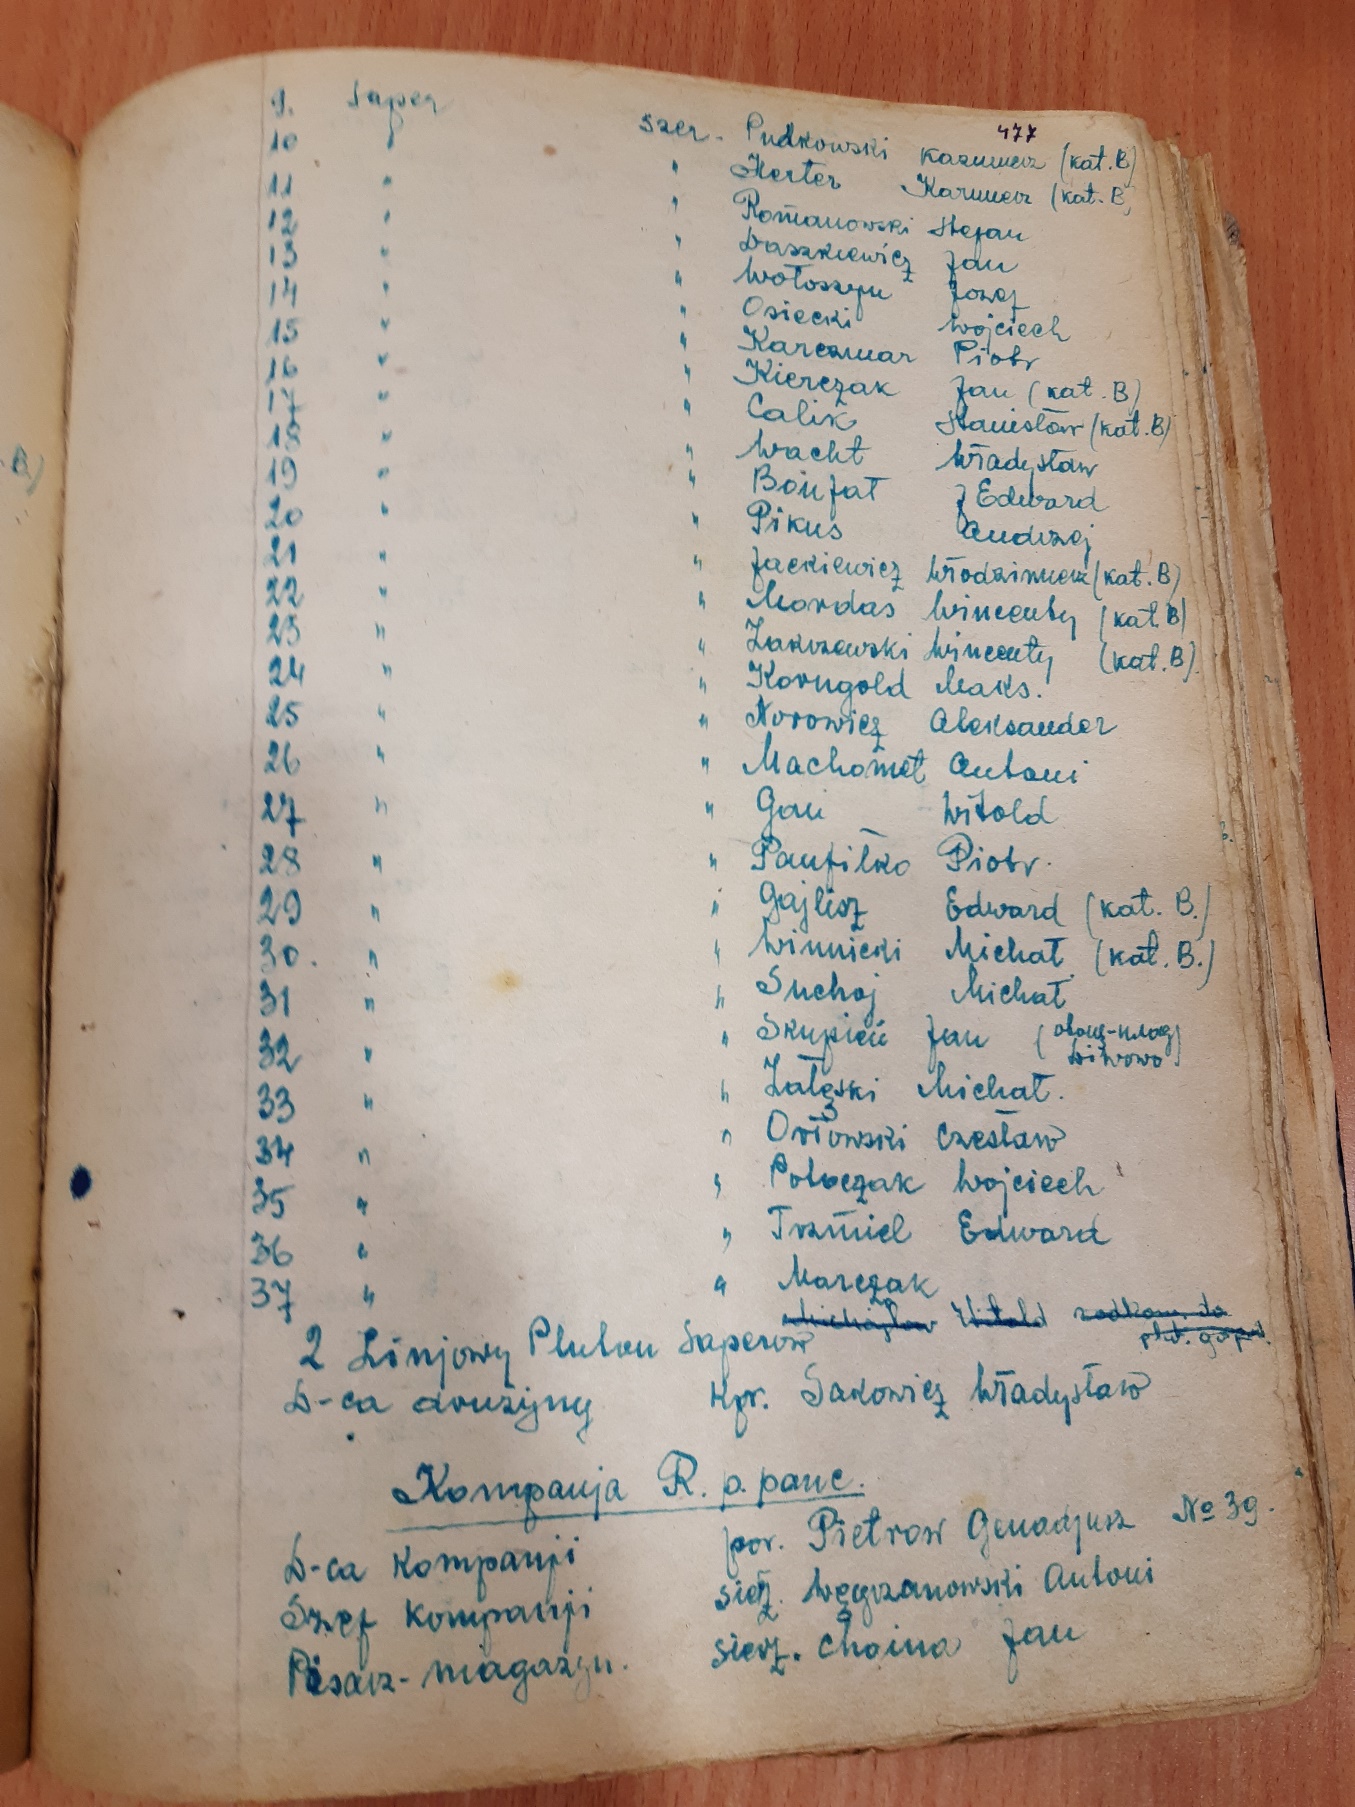 477
9. Saper szer. Pudkowski Kazimierz (kat. B)
10 " " Herter Kazimierz (kat. B)
11 " " Romanowski Stefan
12 " " Daszkiewicz Jan
13 " " Wołoszyn Józef
14 " " Osiecki Wojciech
15 " " Karczmar Piotr
16 " " Kierczak Jan (kat. B)
17 " " Calik Stanisław (kat. B)
18 " " Wacht Władysław
19 " " Bonfał Edward
20 " " Pikus Andrzej
21 " " Jackiewicz Włodzimierz (kat. B)
22 " " Mordas Wincenty (kat. B)
23 " " Zakrzewski Wincenty (kat. B)
24 " " Korngold Maks.
25 " " Norowicz Aleksander
26 " " Machomet Antoni
27 " " Gan Witold
28 " " Panfiłko Piotr.
29 " " Gajlisz Edward (kat. B.)
30. " " Winnicki Michał (kat. B.)
31 " " Suchoj Michał
32 " " Skupień Jan
33 " " Załęski Michał.
34 " " Orłowski Czesław
35 " " Potoczak Wojciech
36 " " Trzmiel Edward
37 " " Marczak
Witold
2 Linjowy Pluton Saperów
D-ca drużyny kpr. Sakowicz Władysław
Kompanja R. p. panc.
D-ca Kompanji por. Pietrow Genadjusz No 39.
Szef Kompanji sierż. Węgrzanowski Antoni
Pisarz-magazyn. sierż. Choina Jan
B)